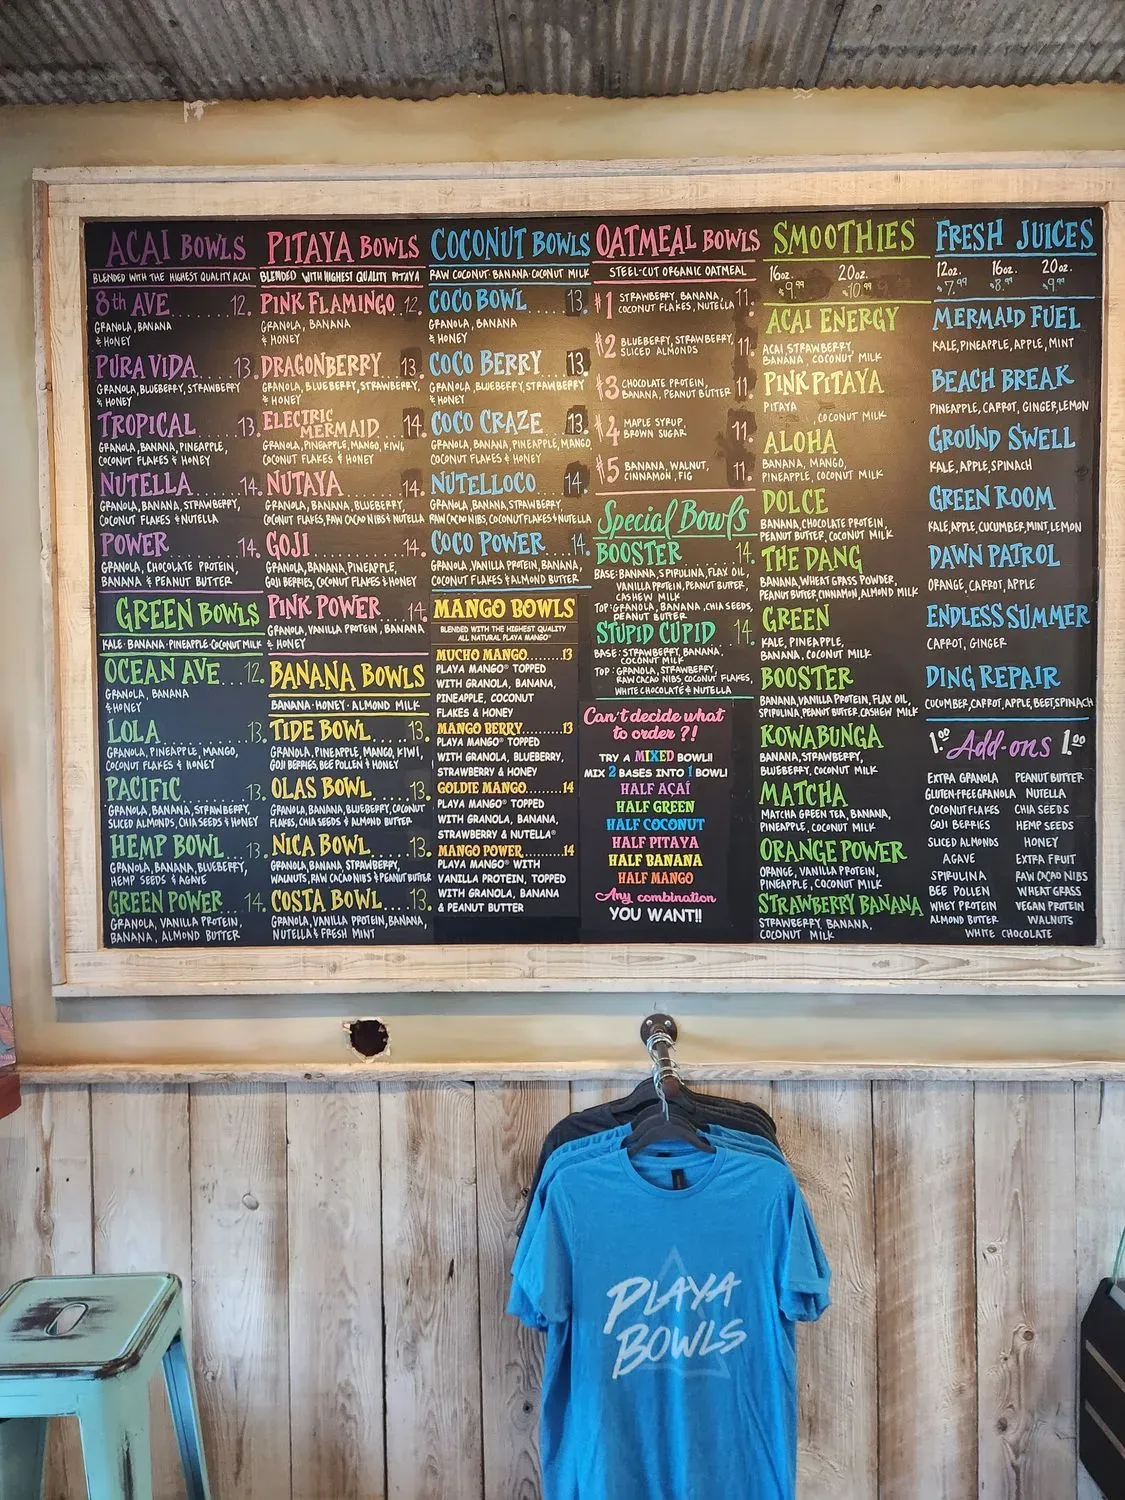 ACAI BOWLS
BLENDED WITH THE HIGHEST QUALITY ACAI
8th AVE......... 12.
GRANOLA, BANANA
& HONEY
PURA VIDA..... 13.
GRANOLA, BLUEBERRY, STRAWBERRY
& HONEY
TROPICAL...... 13.
GRANOLA, BANANA, PINEAPPLE,
COCONUT FLAKES & HONEY
NUTELLA...... 14.
GRANOLA, BANANA, STRAWBERRY,
COCONUT FLAKES & NUTELLA
POWER......... 14.
GRANOLA, CHOCOLATE PROTEIN,
BANANA & PEANUT BUTTER
GREEN BOWLS
KALE · BANANA · PINEAPPLE · COCONUT MILK
OCEAN AVE... 12.
GRANOLA, BANANA
& HONEY
LOLA............ 13.
GRANOLA, PINEAPPLE, MANGO,
COCONUT FLAKES & HONEY
PACIFIC........ 13.
GRANOLA, BANANA, STRAWBERRY,
SLICED ALMONDS, CHIA SEEDS & HONEY
HEMP BOWL... 13.
GRANOLA, BANANA, BLUEBERRY,
HEMP SEEDS & AGAVE
GREEN POWER... 14.
GRANOLA, VANILLA PROTEIN,
BANANA, ALMOND BUTTER
PITAYA BOWLS
BLENDED WITH HIGHEST QUALITY PITAYA
PINK FLAMINGO 12.
GRANOLA, BANANA
& HONEY
DRAGONBERRY.. 13.
GRANOLA, BLUEBERRY, STRAWBERRY,
& HONEY
ELECTRIC
MERMAID.... 14.
GRANOLA, PINEAPPLE, MANGO, KIWI,
COCONUT FLAKES & HONEY
NUTAYA........ 14.
GRANOLA, BANANA, BLUEBERRY,
COCONUT FLAKES, RAW CACAO NIBS & NUTELLA
GOJI............ 14.
GRANOLA, BANANA, PINEAPPLE,
GOJI BERRIES, COCONUT FLAKES & HONEY
PINK POWER... 14.
GRANOLA, VANILLA PROTEIN, BANANA
& HONEY
BANANA BOWLS
BANANA · HONEY · ALMOND MILK
TIDE BOWL..... 13.
GRANOLA, PINEAPPLE, MANGO, KIWI,
GOJI BERRIES, BEE POLLEN & HONEY
OLAS BOWL.... 13.
GRANOLA, BANANA, BLUEBERRY, COCONUT
FLAKES, CHIA SEEDS & ALMOND BUTTER
NICA BOWL..... 13.
GRANOLA, BANANA STRAWBERRY,
WALNUTS, RAW CACAO NIBS & PEANUT BUTTER
COSTA BOWL... 13.
GRANOLA, VANILLA PROTEIN, BANANA,
NUTELLA & FRESH MINT
COCONUT BOWLS
RAW COCONUT · BANANA · COCONUT MILK
COCO BOWL 13.
GRANOLA, BANANA
& HONEY
COCO BERRY 13.
GRANOLA, BLUEBERRY, STRAWBERRY
& HONEY
COCO CRAZE... 13.
GRANOLA, BANANA, PINEAPPLE, MANGO,
COCONUT FLAKES & HONEY
NUTELLOCO 14.
GRANOLA, BANANA, STRAWBERRY,
RAW CACAO NIBS, COCONUT FLAKES & NUTELLA
COCO POWER... 14.
GRANOLA, VANILLA PROTEIN, BANANA,
COCONUT FLAKES & ALMOND BUTTER
MANGO BOWLS
BLENDED WITH THE HIGHEST QUALITY
ALL NATURAL PLAYA MANGO®
MUCHO MANGO........13
PLAYA MANGO® TOPPED
WITH GRANOLA, BANANA,
PINEAPPLE, COCONUT
FLAKES & HONEY
MANGO BERRY.........13
PLAYA MANGO® TOPPED
WITH GRANOLA, BLUEBERRY,
STRAWBERRY & HONEY
GOLDIE MANGO........14
PLAYA MANGO® TOPPED
WITH GRANOLA, BANANA,
STRAWBERRY & NUTELLA®
MANGO POWER.........14
PLAYA MANGO® WITH
VANILLA PROTEIN, TOPPED
WITH GRANOLA, BANANA
& PEANUT BUTTER
OATMEAL BOWLS
STEEL-CUT ORGANIC OATMEAL
#1 STRAWBERRY, BANANA, 11.
COCONUT FLAKES, NUTELLA
#2 BLUEBERRY, STRAWBERRY, 11.
SLICED ALMONDS
#3 CHOCOLATE PROTEIN, 11.
BANANA, PEANUT BUTTER
#4 MAPLE SYRUP, 11.
BROWN SUGAR
#5 BANANA, WALNUT, 11.
CINNAMON, FIG
Special Bowls
BOOSTER........ 14.
BASE: BANANA, SPIRULINA, FLAX OIL,
VANILLA PROTEIN, PEANUT BUTTER,
CASHEW MILK
TOP: GRANOLA, BANANA, CHIA SEEDS,
PEANUT BUTTER
STUPID CUPID... 14.
BASE: STRAWBERRY, BANANA,
COCONUT MILK
TOP: GRANOLA, STRAWBERRY,
RAW CACAO NIBS, COCONUT FLAKES,
WHITE CHOCOLATE & NUTELLA
Can't decide what
to order ?!
TRY A MIXED BOWL!!
MIX 2 BASES INTO 1 BOWL!
HALF AÇAÍ
HALF GREEN
HALF COCONUT
HALF PITAYA
HALF BANANA
HALF MANGO
Any combination
YOU WANT!!
SMOOTHIES
16oz. 20oz.
$9.99 $10.99
ACAI ENERGY
ACAI, STRAWBERRY,
BANANA COCONUT MILK
PINK PITAYA
PITAYA , COCONUT MILK
ALOHA
BANANA, MANGO,
PINEAPPLE, COCONUT MILK
DOLCE
BANANA, CHOCOLATE PROTEIN,
PEANUT BUTTER, COCONUT MILK
THE DANG
BANANA, WHEAT GRASS POWDER,
PEANUT BUTTER, CINNAMON, ALMOND MILK
GREEN
KALE, PINEAPPLE,
BANANA, COCONUT MILK
BOOSTER
BANANA, VANILLA PROTEIN, FLAX OIL,
SPIRULINA, PEANUT BUTTER, CASHEW MILK
KOWABUNGA
BANANA, STRAWBERRY,
BLUEBERRY, COCONUT MILK
MATCHA
MATCHA GREEN TEA, BANANA,
PINEAPPLE, COCONUT MILK
ORANGE POWER
ORANGE, VANILLA PROTEIN,
PINEAPPLE, COCONUT MILK
STRAWBERRY BANANA
STRAWBERRY, BANANA,
COCONUT MILK
FRESH JUICES
12oz. 16oz. 20oz.
$7.99 $8.99 $9.99
MERMAID FUEL
KALE, PINEAPPLE, APPLE, MINT
BEACH BREAK
PINEAPPLE, CARROT, GINGER, LEMON
GROUND SWELL
KALE, APPLE, SPINACH
GREEN ROOM
KALE, APPLE, CUCUMBER, MINT, LEMON
DAWN PATROL
ORANGE, CARROT, APPLE
ENDLESS SUMMER
CARROT, GINGER
DING REPAIR
CUCUMBER, CARROT, APPLE, BEET, SPINACH
1.00 Add-ons 1.00
EXTRA GRANOLA PEANUT BUTTER
GLUTEN-FREE GRANOLA NUTELLA
COCONUT FLAKES CHIA SEEDS
GOJI BERRIES HEMP SEEDS
SLICED ALMONDS HONEY
AGAVE EXTRA FRUIT
SPIRULINA RAW CACAO NIBS
BEE POLLEN WHEAT GRASS
WHEY PROTEIN VEGAN PROTEIN
ALMOND BUTTER WALNUTS
WHITE CHOCOLATE
PLAYA
BOWLS